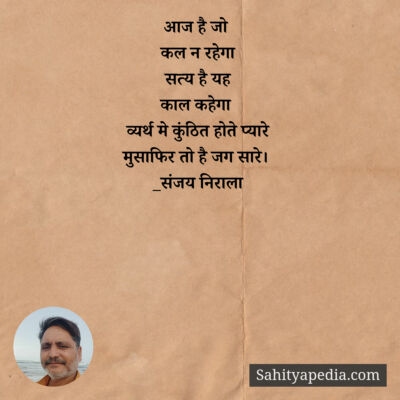 आज है जो
कल न रहेगा
सत्य है यह
काल कहेगा
व्यर्थ मे कुंठित होते प्यारे
मुसाफिर तो है जग सारे।
_संजय निराला
Sahityapedia.com